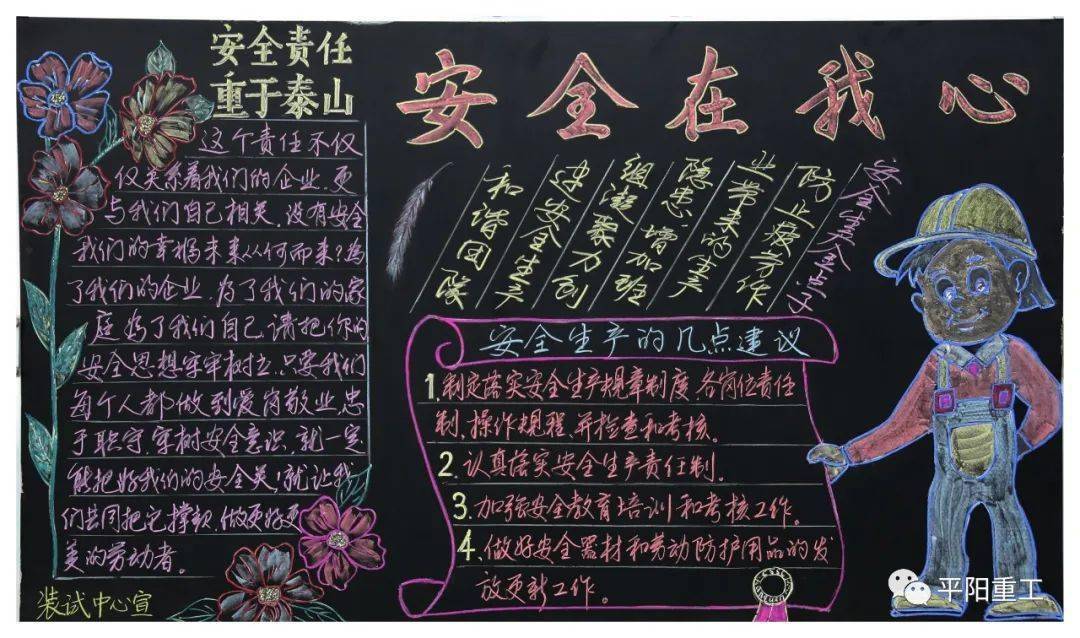 安全责任
重于泰山
这个责任不仅
仅关系着我们的企业,更
与我们自己相关。没有安全
我们的幸福未来从何而来?为
了我们的企业,为了我们的家
庭,为了我们自己,请把你的
安全思想牢牢树立,只要我们
每个人都做到爱岗敬业,忠
于职守,牢树安全意识,就一定
能把好我们的安全关!就让我
们共同把它撑 做更好更
美的劳动者。
装试中心宣
安全在我心
安全生产
防止疲劳作
业带来的生产
隐患,增加班
组凝聚力创
建安全生产
和谐团队
安全生产的几点建议
1.制定落实安全生产规章制度、各岗位责任
制、操作规程,并检查和考核。
2.认真落实安全生产责任制。
3.加强安全教育培训和考核工作。
4.做好安全器材和劳动防护用品的发
放更新工作。
平阳重工